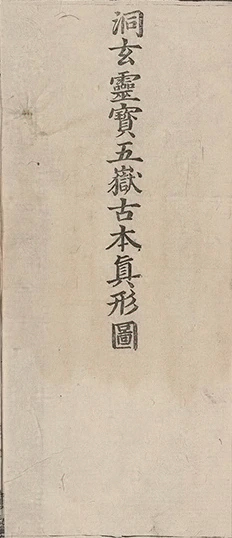 洞玄靈寶五嶽古本眞形圖